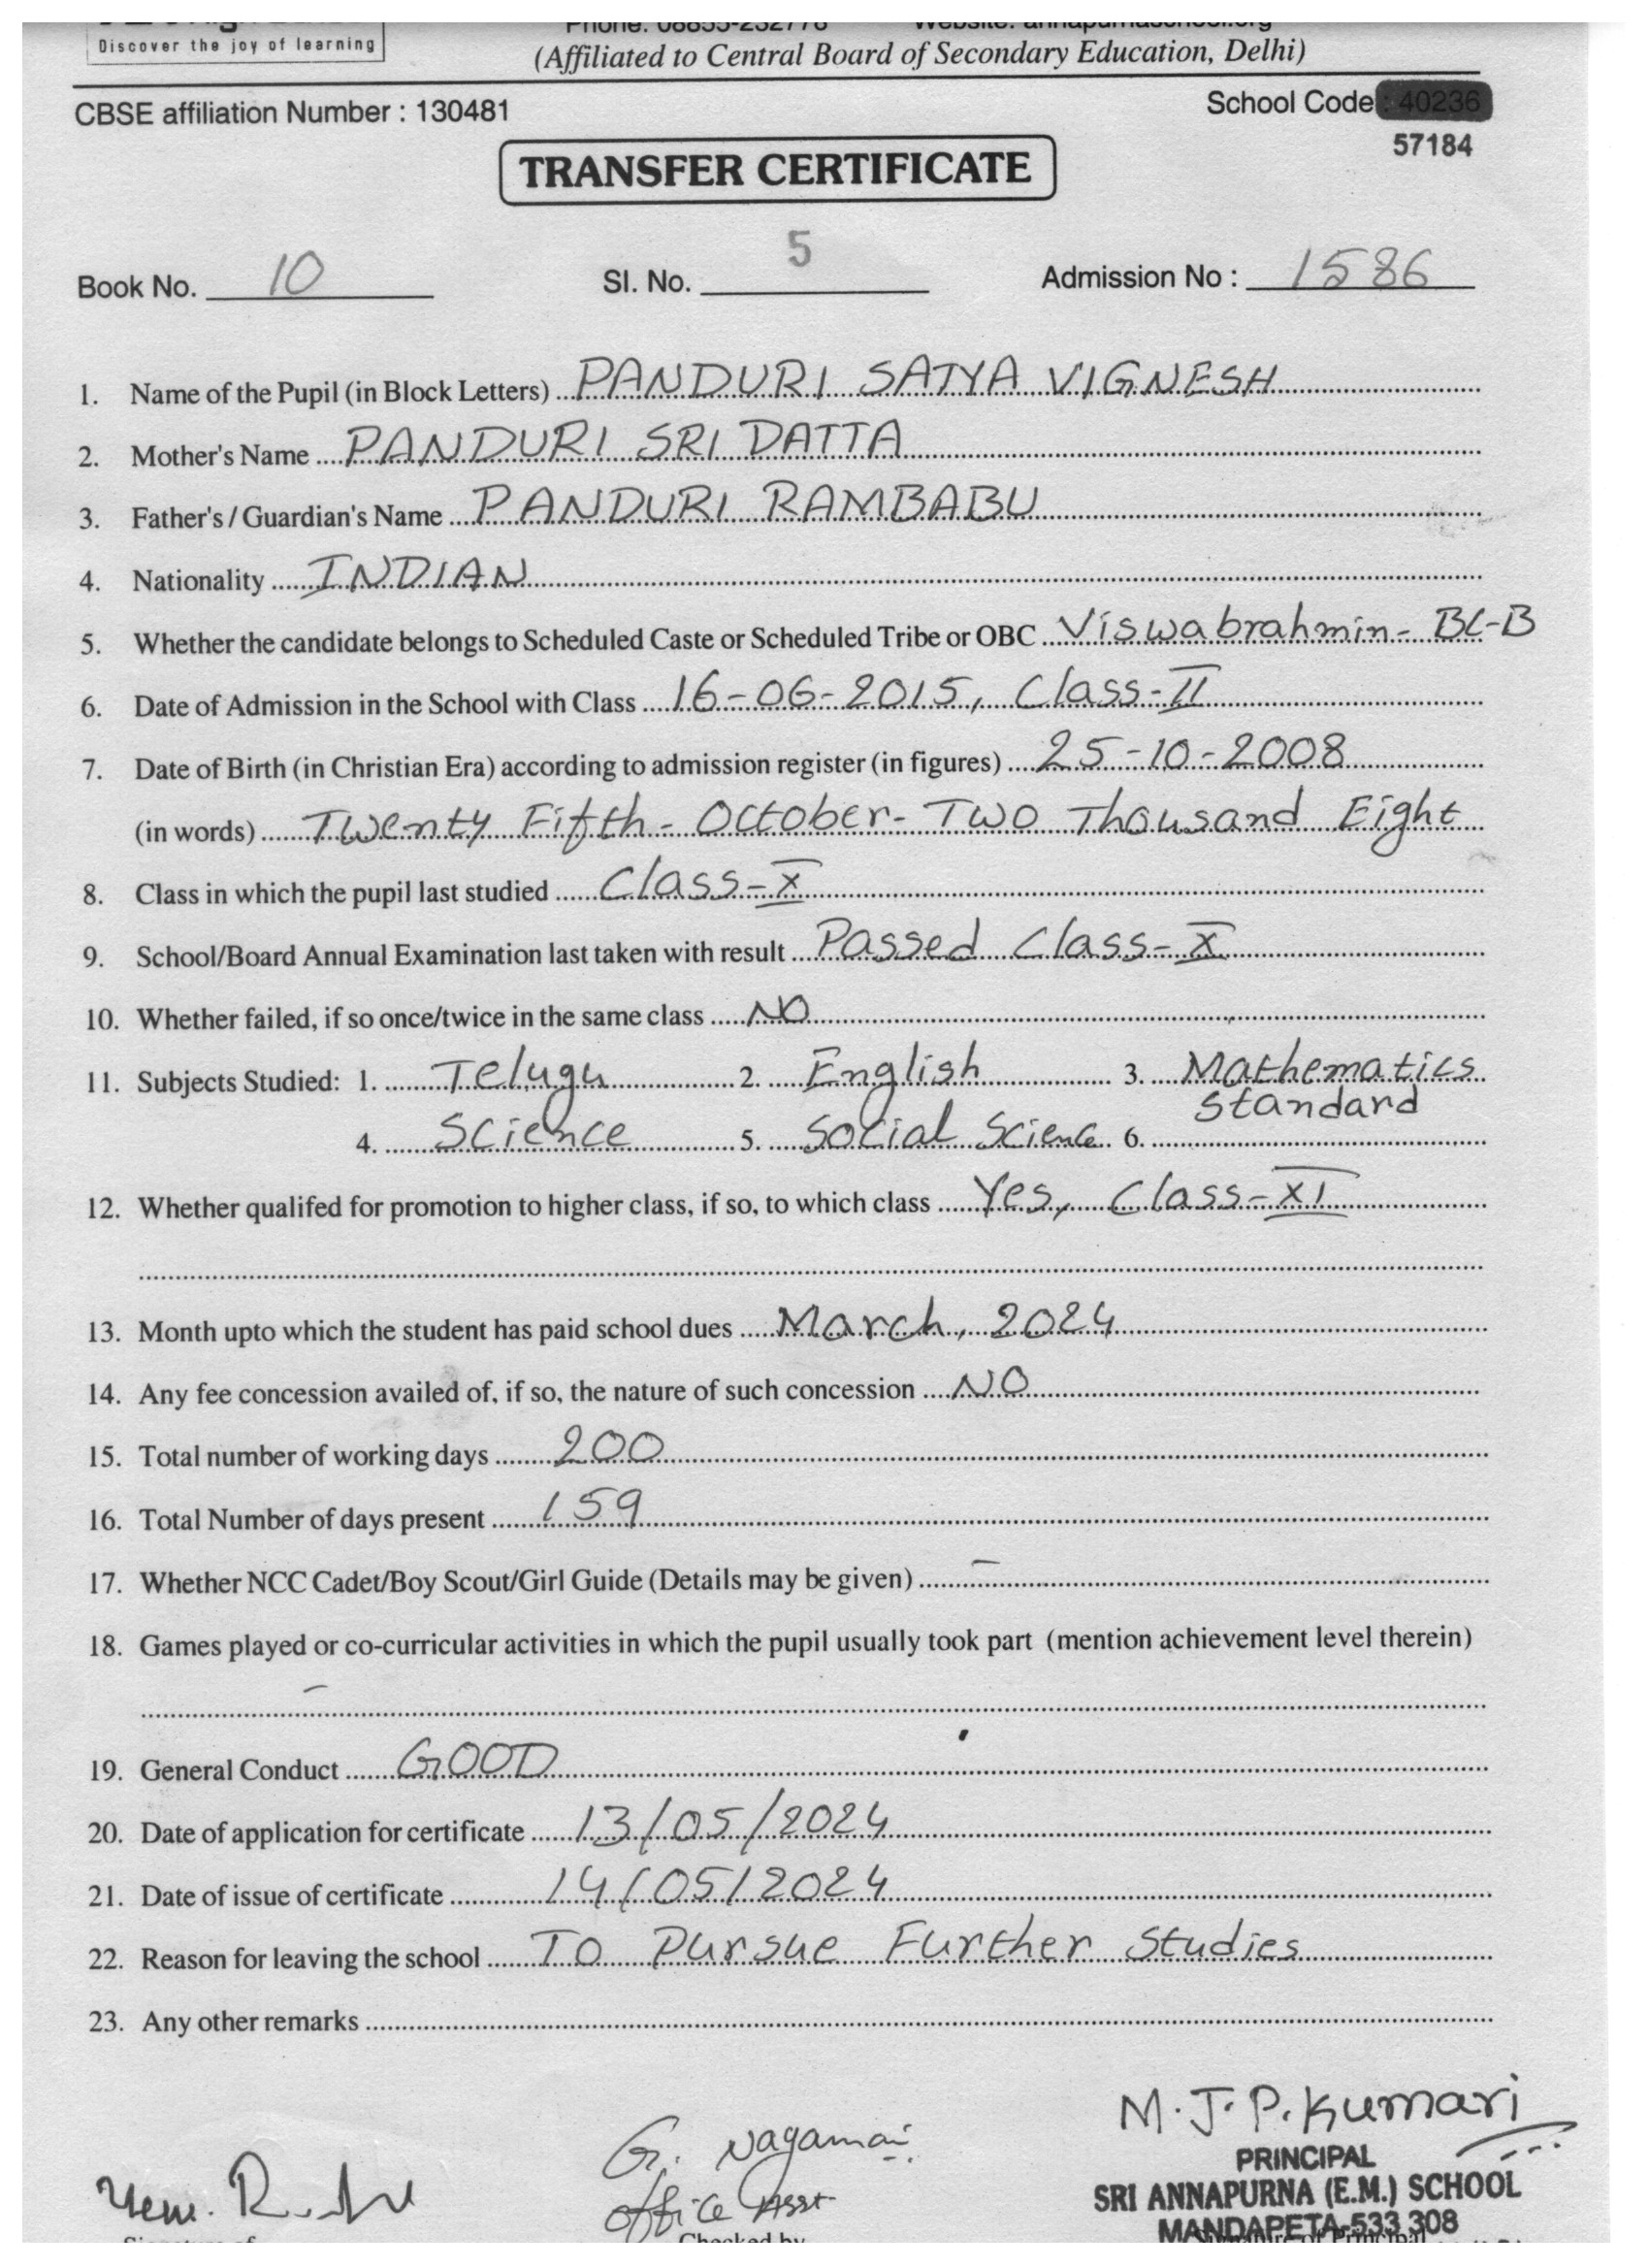 Discover the joy of learning
Phone: 08855-232778 Website: annapurnaschool.org
(Affiliated to Central Board of Secondary Education, Delhi)
CBSE affiliation Number : 130481 School Code : 40236
57184
TRANSFER CERTIFICATE
Book No. 10 Sl. No. 5 Admission No : 1586
1. Name of the Pupil (in Block Letters) PANDURI SATYA VIGNESH
2. Mother's Name PANDURI SRI DATTA
3. Father's / Guardian's Name PANDURI RAMBABU
4. Nationality INDIAN
5. Whether the candidate belongs to Scheduled Caste or Scheduled Tribe or OBC Viswabrahmin - BC-B
6. Date of Admission in the School with Class 16-06-2015, Class-II
7. Date of Birth (in Christian Era) according to admission register (in figures) 25-10-2008
(in words) Twenty Fifth - October - Two Thousand Eight
8. Class in which the pupil last studied Class-X
9. School/Board Annual Examination last taken with result Passed Class-X
10. Whether failed, if so once/twice in the same class NO
11. Subjects Studied: 1. Telugu 2. English 3. Mathematics
Standard
4. Science 5. Social Science 6.
12. Whether qualifed for promotion to higher class, if so, to which class Yes, Class-XI
13. Month upto which the student has paid school dues March, 2024
14. Any fee concession availed of, if so, the nature of such concession NO
15. Total number of working days 200
16. Total Number of days present 159
17. Whether NCC Cadet/Boy Scout/Girl Guide (Details may be given) -
18. Games played or co-curricular activities in which the pupil usually took part (mention achievement level therein)
-
19. General Conduct GOOD
20. Date of application for certificate 13/05/2024
21. Date of issue of certificate 14/05/2024
22. Reason for leaving the school To Pursue Further Studies
23. Any other remarks
M. J. P. Kumari
G. Nagamani
PRINCIPAL
SRI ANNAPURNA (E.M.) SCHOOL
Office Asst
MANDAPETA-533 308
Signature of Checked by Signature of Principal